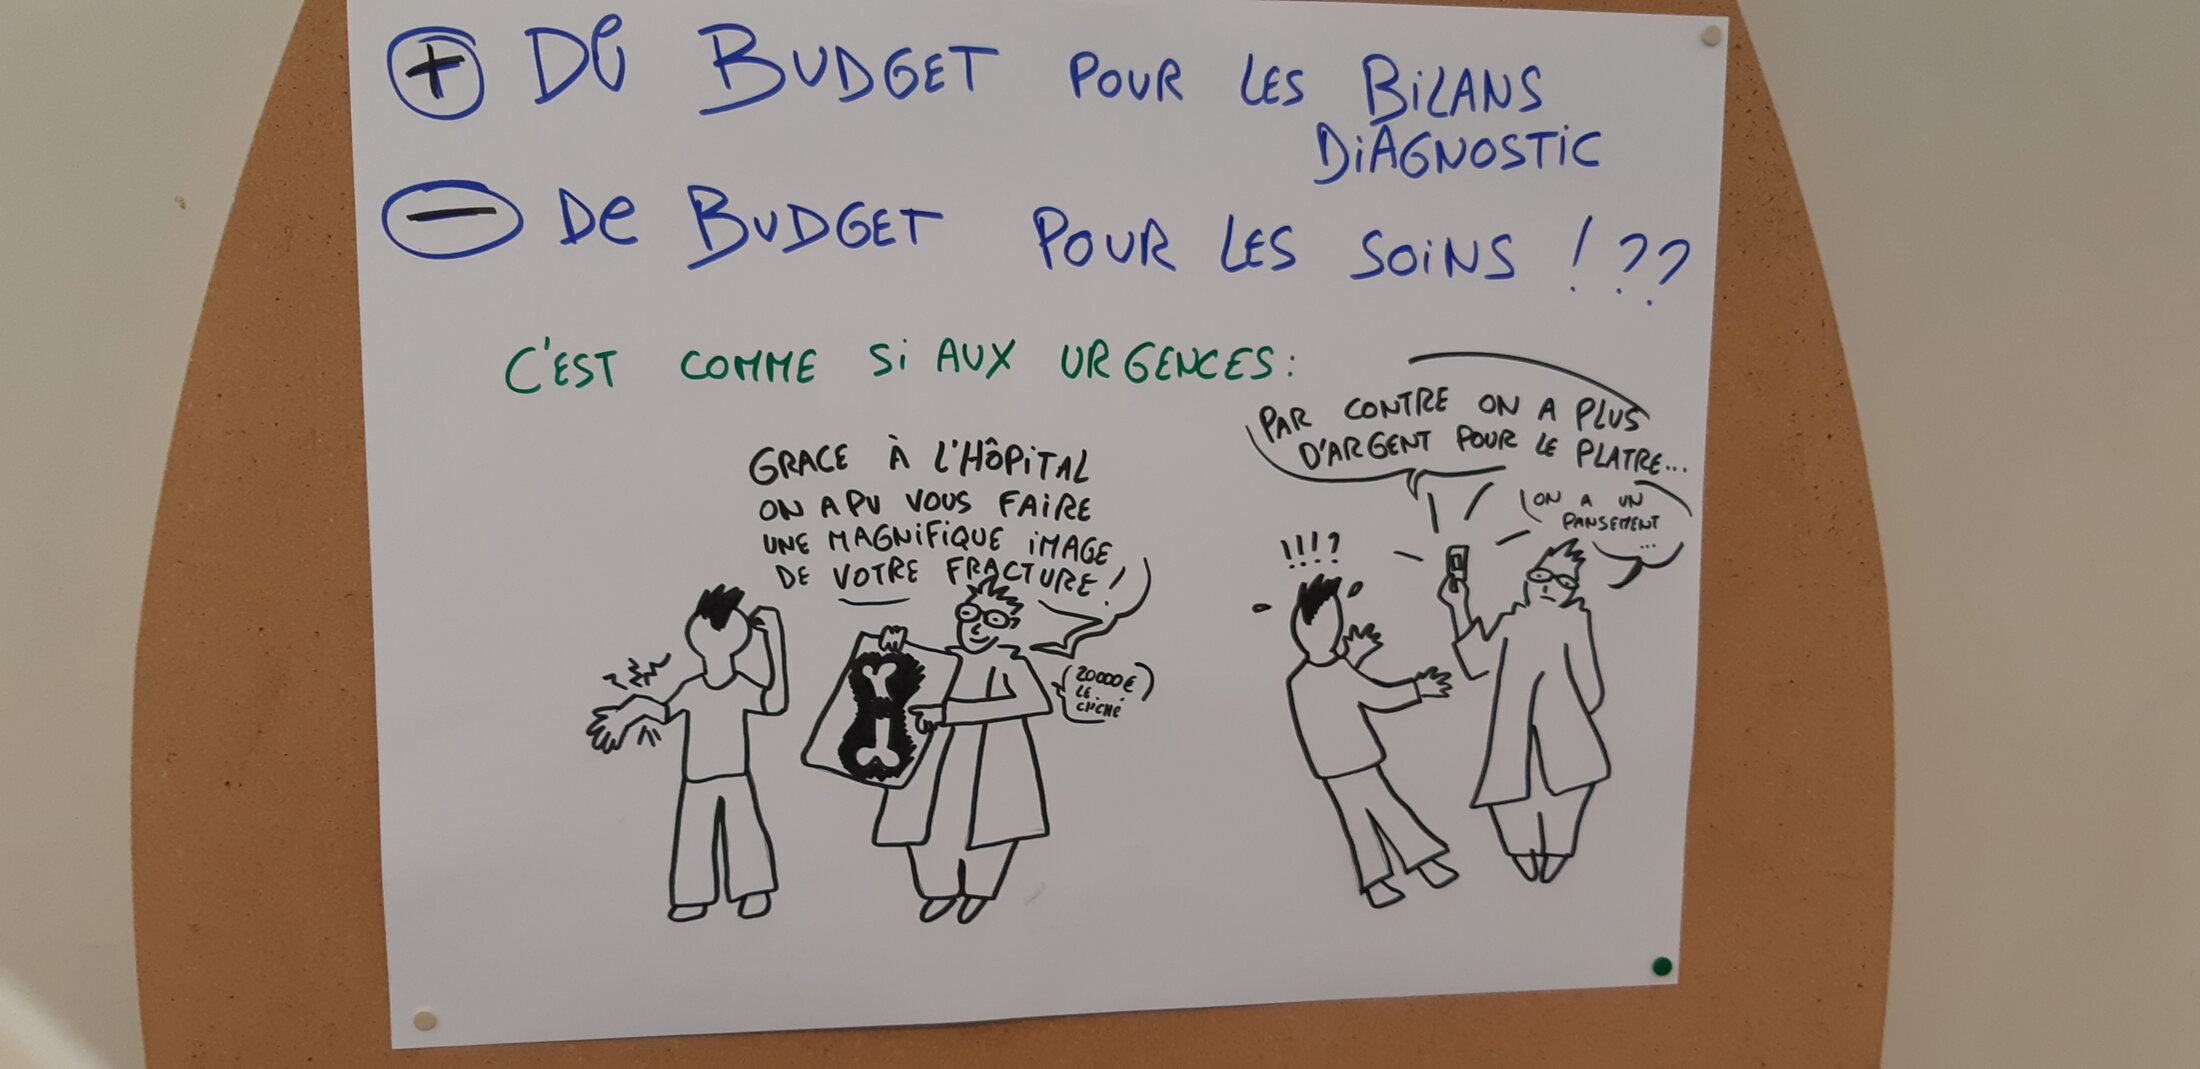 + De BUDGET POUR LES BiLANS
DiAGNOSTiC
- De BUDGET POUR LES SOiNS !??
C'EST COMME Si AUX URGENCES:
GRACE À L'HÔPiTAL
ON A PU VOUS FAiRE
UNE MAGNiFiQUE iMAGE
DE VOTRE FRACTURE !
(20000€
LE
CLiCHÉ
PAR CONTRE ON A PLUS
D'ARGENT POUR LE PLATRE...
ON A UN
PANSEMENT
...
!!!?